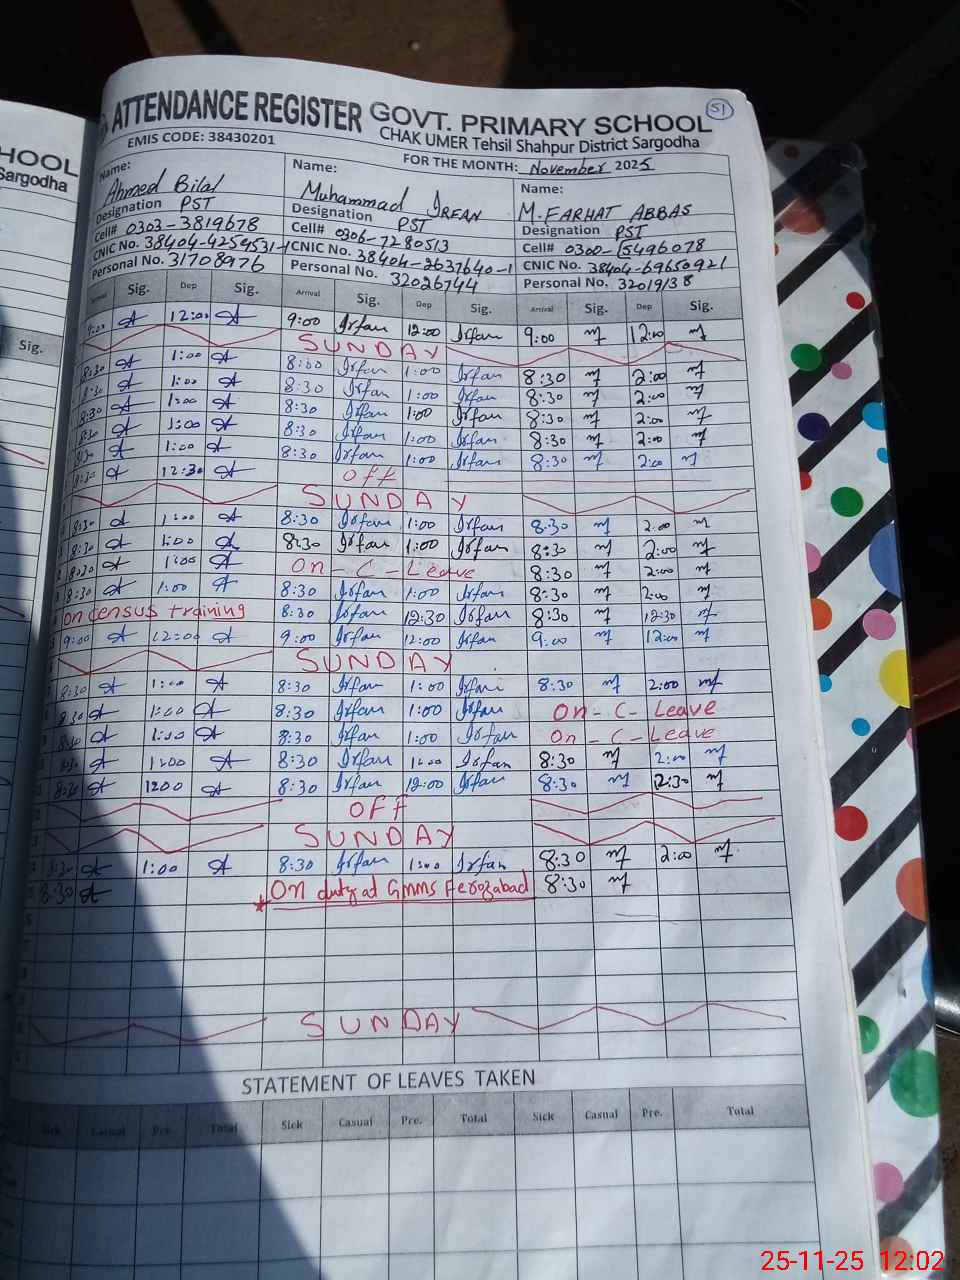 ATTENDANCE REGISTER GOVT. PRIMARY SCHOOL 51
HOOL
EMIS CODE: 38430201 CHAK UMER Tehsil Shahpur District Sargodha
Sargodha
FOR THE MONTH: November 2025
Name: Name: Name:
Ahmed Bilal Muhammad Irfan M. FARHAT ABBAS
Designation PST Designation PST Designation PST
Cell# 0303-3819678 Cell# 0306-7280513 Cell# 0300-5496078
CNIC No. 38404-4259531-1 CNIC No. 38404-2637640-1 CNIC No. 38404-69650921
Personal No. 31708976 Personal No. 32026744 Personal No. 32019138
Arrival Sig. Dep Sig. Arrival Sig. Dep Sig. Arrival Sig. Dep Sig.
Sig.
9:00 12:00 9:00 Irfan 12:00 Irfan 9:00 12:00
SUNDAY
8:30 1:00 8:30 Irfan 1:00 Irfan 8:30 2:00
8:30 1:00 8:30 Irfan 1:00 Irfan 8:30 2:00
8:30 1:00 8:30 Irfan 1:00 Irfan 8:30 2:00
8:30 1:00 8:30 Irfan 1:00 Irfan 8:30 2:00
8:30 1:00 8:30 Irfan 1:00 Irfan 8:30 2:00
8:30 12:30 Off
SUNDAY
8:30 1:00 8:30 Irfan 1:00 Irfan 8:30 2:00
8:30 1:00 8:30 Irfan 1:00 Irfan 8:30 2:00
8:30 1:00 On-C-Leave 8:30 2:00
8:30 1:00 8:30 Irfan 1:00 Irfan 8:30 2:00
on census training 8:30 Irfan 12:30 Irfan 8:30 12:30
9:00 12:00 9:00 Irfan 12:00 Irfan 9:00 12:00
SUNDAY
8:30 1:00 8:30 Irfan 1:00 Irfan 8:30 2:00
8:30 1:00 8:30 Irfan 1:00 Irfan On-C-Leave
8:30 1:00 8:30 Irfan 1:00 Irfan On-C-Leave
8:30 1:00 8:30 Irfan 1:00 Irfan 8:30 2:00
8:30 1200 8:30 Irfan 12:00 Irfan 8:30 12:30
OFF
SUNDAY
8:30 1:00 8:30 Irfan 1:00 Irfan 8:30 2:00
8:30 * On duty at GMMS Ferozabad 8:30
SUNDAY
STATEMENT OF LEAVES TAKEN
Sick Casual Pre. Total Sick Casual Pre. Total Sick Casual Pre. Total
25-11-25 12:02